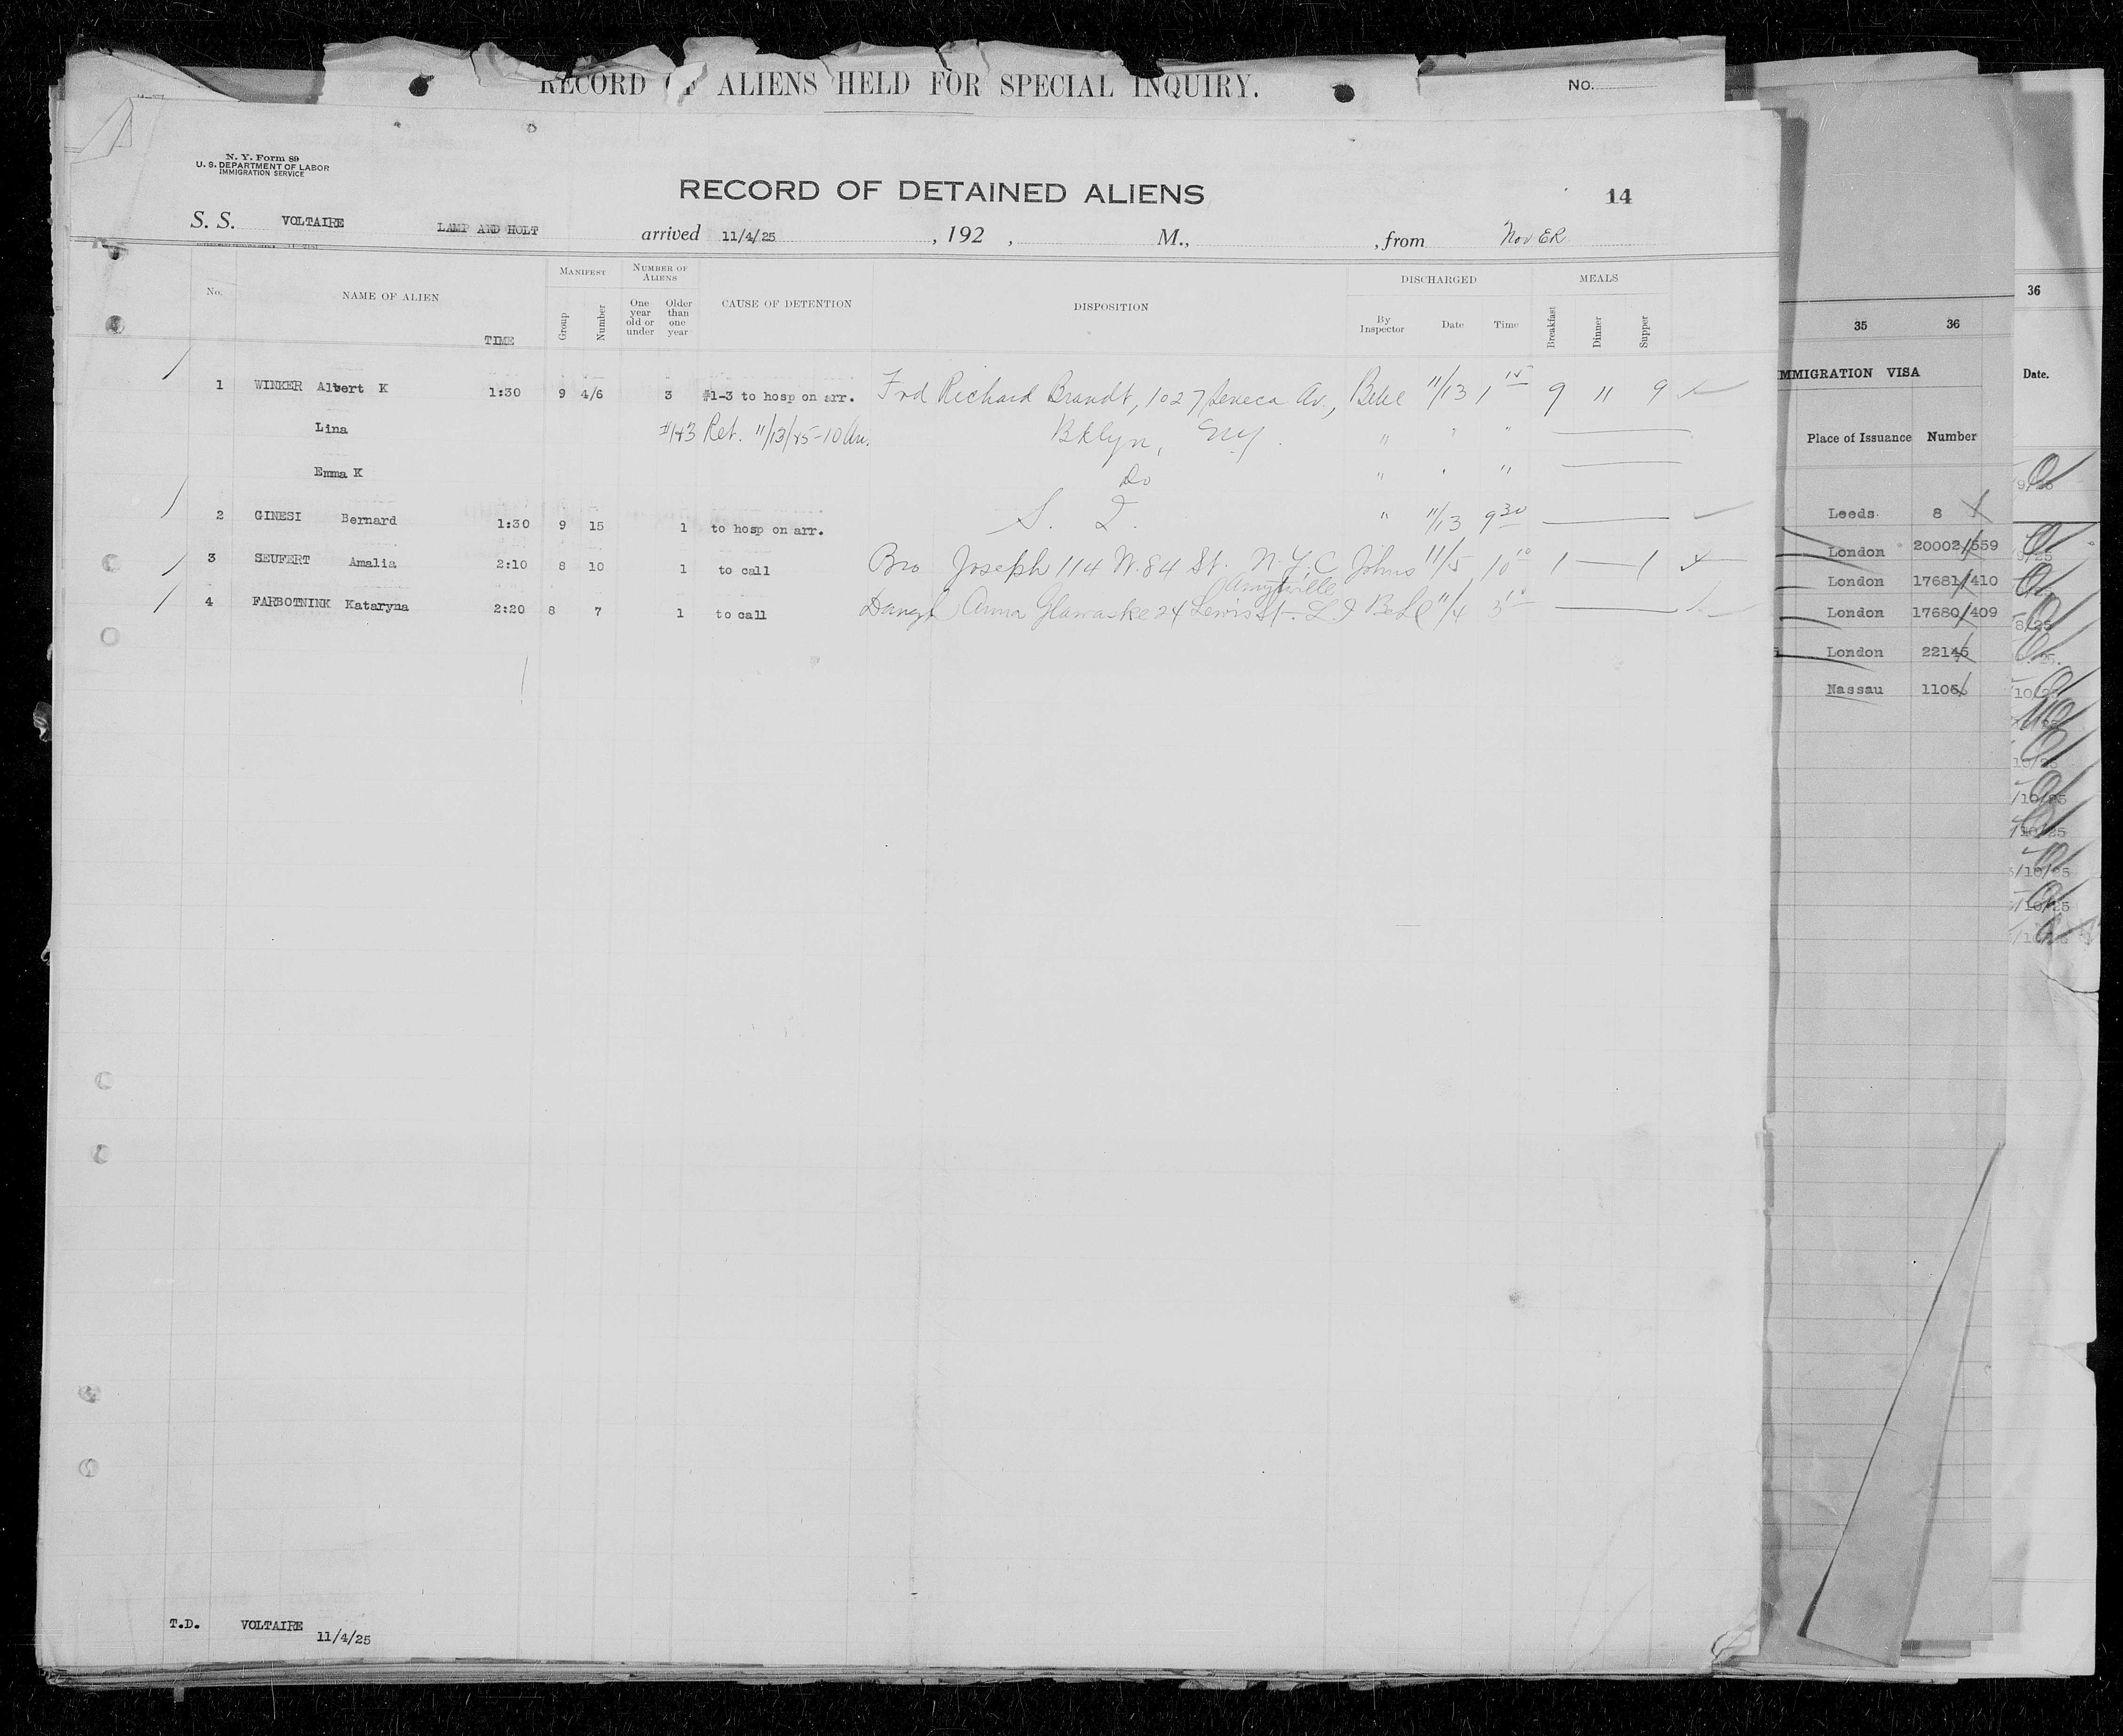 RECORD OF ALIENS HELD FOR SPECIAL INQUIRY.
No.
N. Y. Form 89
U. S. DEPARTMENT OF LABOR
IMMIGRATION SERVICE
RECORD OF DETAINED ALIENS
14
S. S. VOLTAIRE LAMP AND HOLT arrived 11/4/25, 192 , M., , from
No. NAME OF ALIEN TIME MANIFEST Group Number NUMBER OF ALIENS One year old or under Older than one year CAUSE OF DETENTION DISPOSITION DISCHARGED By Inspector Date Time MEALS Breakfast Dinner Supper
1 WINKER Albert K 1:30 9 4/6 3 #1-3 to hosp on arr. Frd Richard Brandt, 1027 Seneca Av., 11/13 1 15 9 11 9
Lina Ret. 11/13/25-10 Am. Bklyn, " " "
Emma K Do " " "
2 GINESI Bernard 1:30 9 15 1 to hosp on arr. S. I. " 11/13 9 30
3 SEUFERT Amalia 2:10 8 10 1 to call Bro Joseph 114 W. 84 St. N.Y.C Johns 11/5 10 10 1 — 1
Amityville
4 FARBOTNINK Kataryna 2:20 8 7 1 to call Daugh Anna Glawaske 24 Lewis St. L.I 11/4 3 10
T.D. VOLTAIRE 11/4/25
35 36
IMMIGRATION VISA
Place of Issuance Number
Leeds 8
London 20002/559
London 17681/410
London 17680/409
London 22145
Nassau 1106
36
Date.